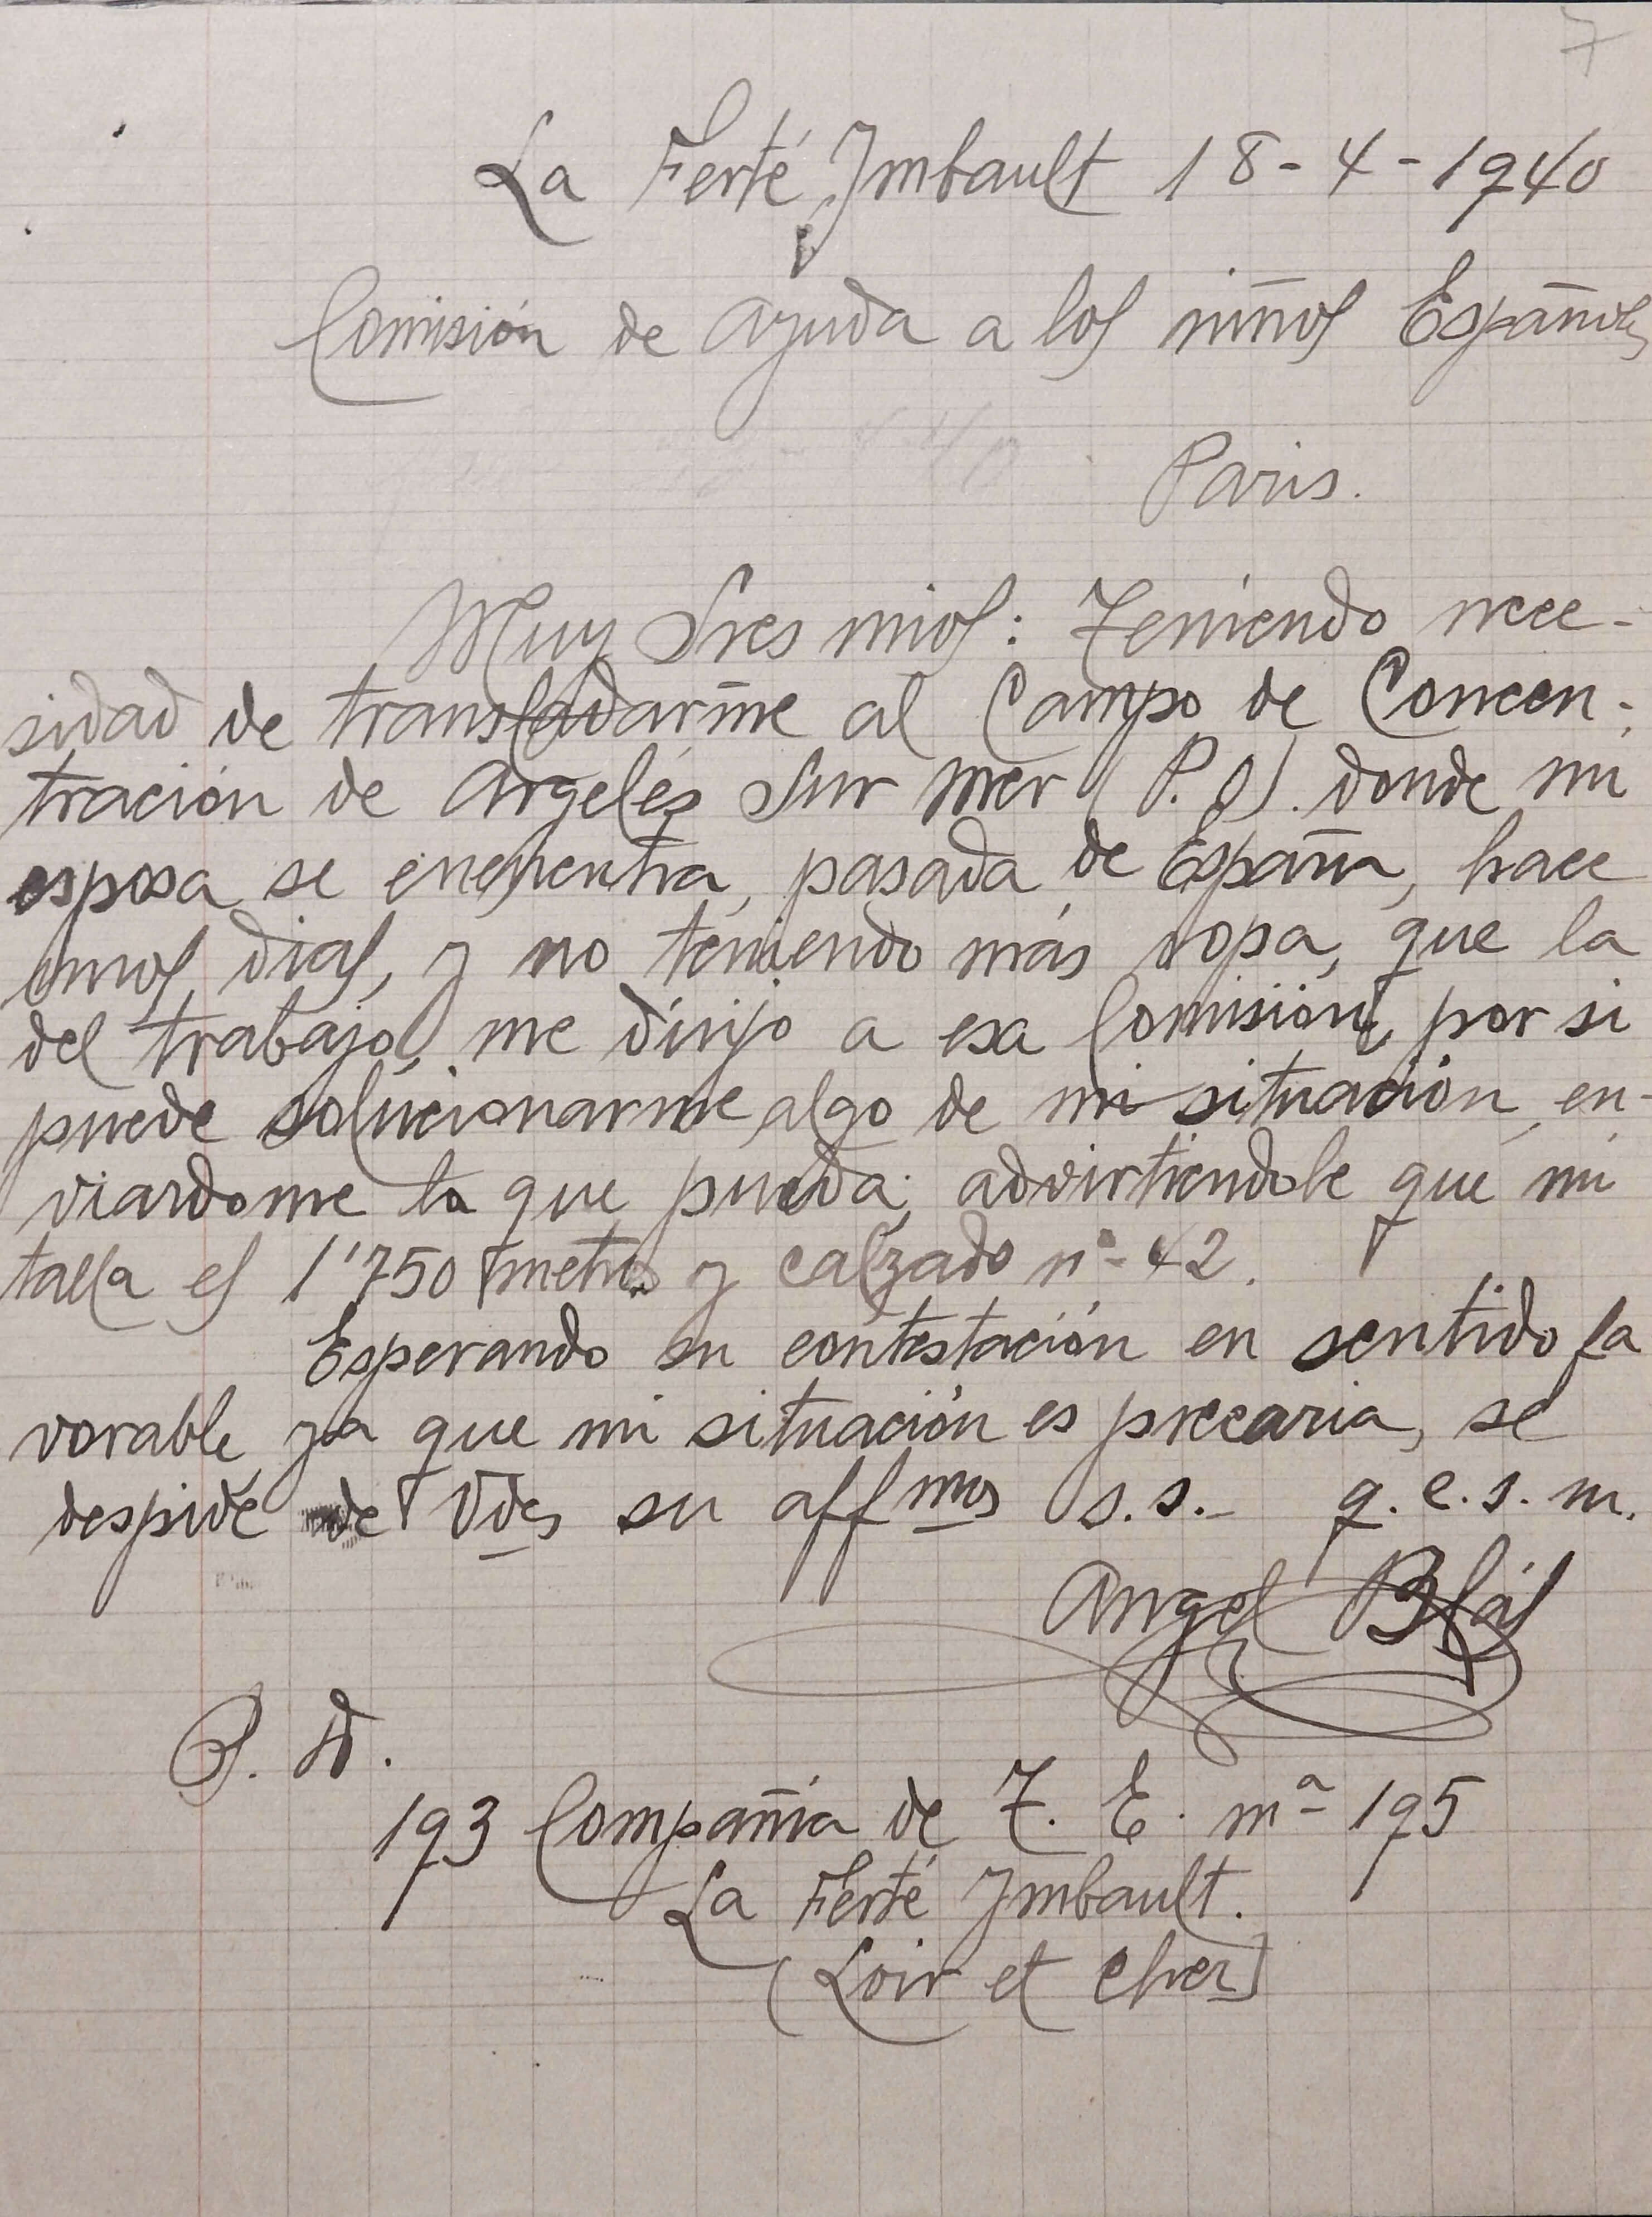 7
La Ferté Imbault 18-4-1940
Comisión de ayuda a los niños Españoles
Paris.
Muy Sres mios: Teniendo nece-
sidad de transladarme al Campo de Concen-
tración de Argelés Sur Mer (P. O). donde mi
esposa se encuentra, pasada de España, hace
unos dias, y no teniendo más ropa, que la
del trabajo, me dirijo a esa Comisión, por si
puede solucionarme algo de mi situación, en-
viardome lo que pueda; advirtiendole que mi
talla es 1'750 metros y calzado nº 42.
Esperando su contestación en sentido fa
vorable, ya que mi situación es precaria, se
despide de Vdes su affmos s.s.- q.e.s.m.
Angel Blás
P. D.
193 Compañia de T. E. mª 195
La Ferté Imbault.
(Loir et Cher)